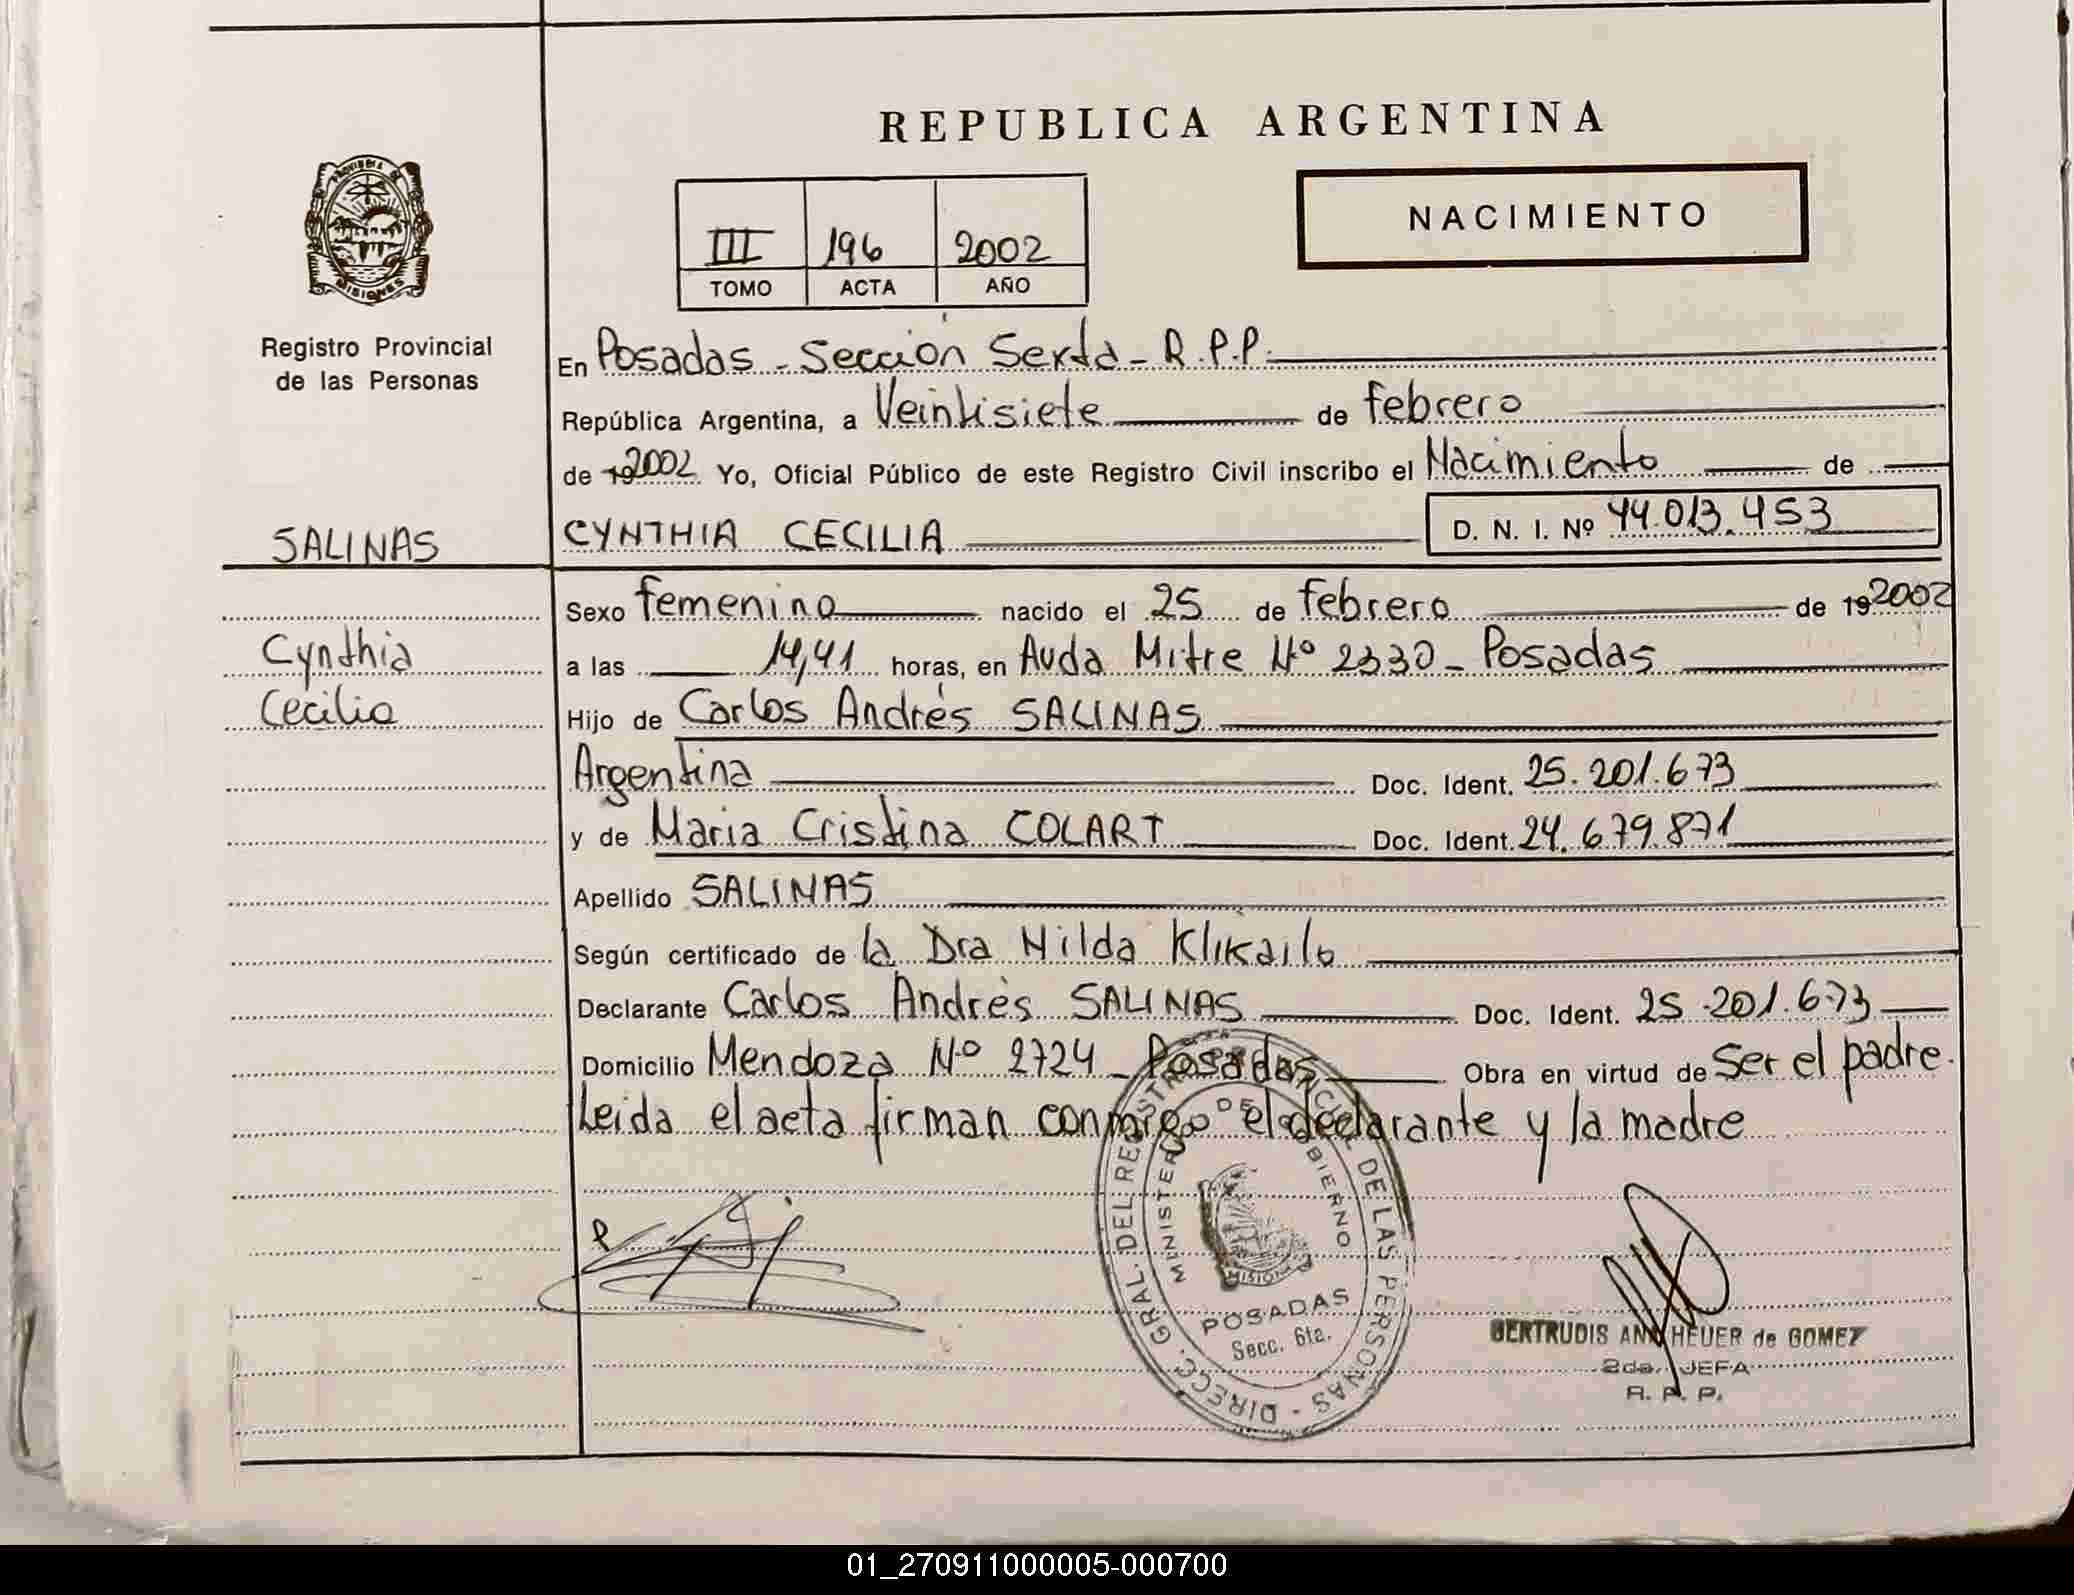 REPUBLICA ARGENTINA
PROVINCIA DE
MISIONES
Registro Provincial
de las Personas
III 196 2002
TOMO ACTA AÑO
NACIMIENTO
En Posadas - Sección Sexta - R.P.P.
República Argentina, a Veintisiete de febrero
de 192002 Yo, Oficial Público de este Registro Civil inscribo el Nacimiento de
SALINAS
CYNTHIA CECILIA D. N. I. Nº 44.013.453
Sexo femenino nacido el 25 de febrero de 192002
Cynthia
a las 14,41 horas, en Avda Mitre Nº 2330 - Posadas
Cecilia
Hijo de Carlos Andrés SALINAS
Argentina Doc. Ident. 25.201.673
y de Maria Cristina COLART Doc. Ident. 24.679.871
Apellido SALINAS
Según certificado de la Dra Nilda Klikailo
Declarante Carlos Andrés SALINAS Doc. Ident. 25.201.673
Domicilio Mendoza Nº 2724 - Posadas Obra en virtud de Ser el padre.
Leida el acta firman conmigo el declarante y la madre
DIRECC. GRAL. DEL REGISTRO PROVINCIAL DE LAS PERSONAS -
MINISTERIO DE GOBIERNO
MISIONES
POSADAS
Secc. 6ta.
GERTRUDIS HEUER de GOMEZ
2da. JEFA
R. P. P.
01_270911000005-000700